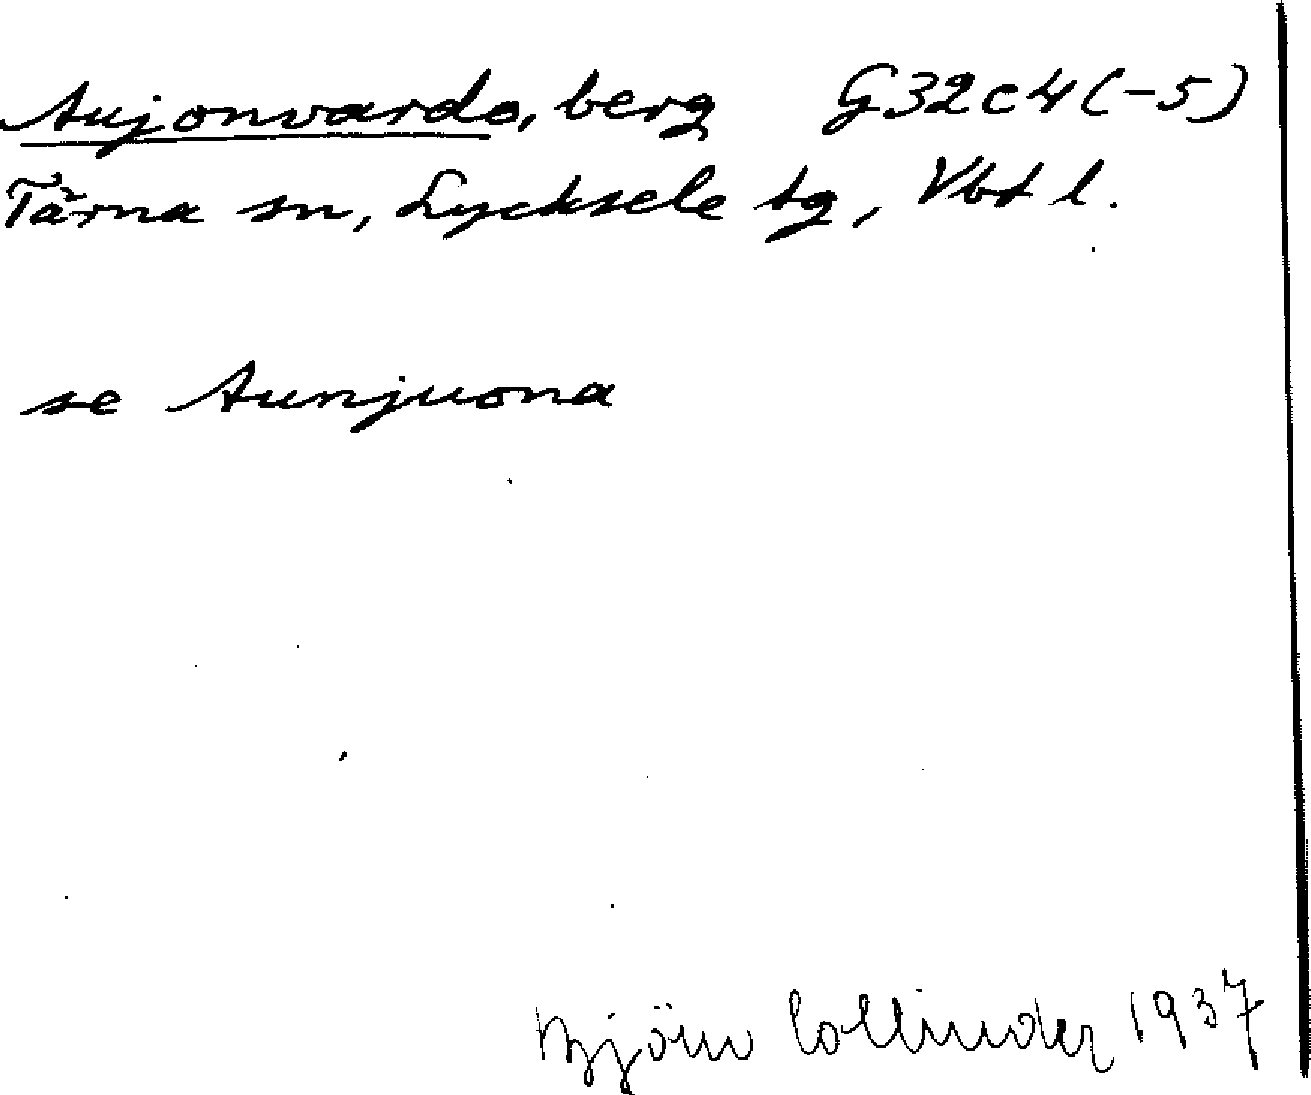 Aujonvardo, berg G32c4(-5)
Tärna sn, Lycksele tg, Vbt l.
se Aunjuona
Björn Collinder 1937